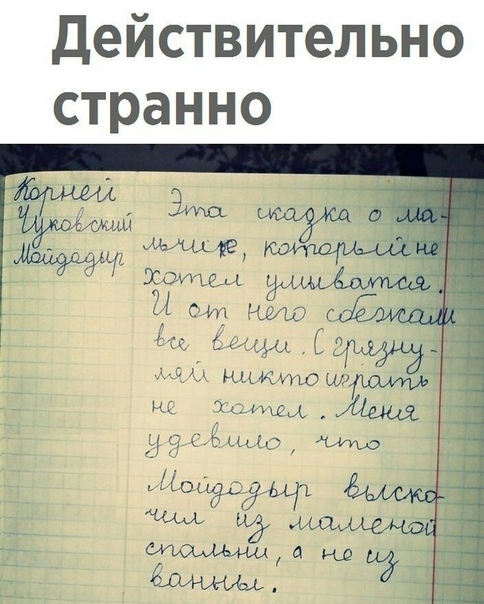 Действительно
странно
Корней
Чуковский
Мойдодыр
Эта сказка о ма-
льчике, которыйне
хотел умыватся.
И от него сбежали
все вещи. С грязну-
лей никто играть
не хотел. Меня
удевило, что
Мойдодыр выско-
чил из маменой
спальни, а не из
ванны.